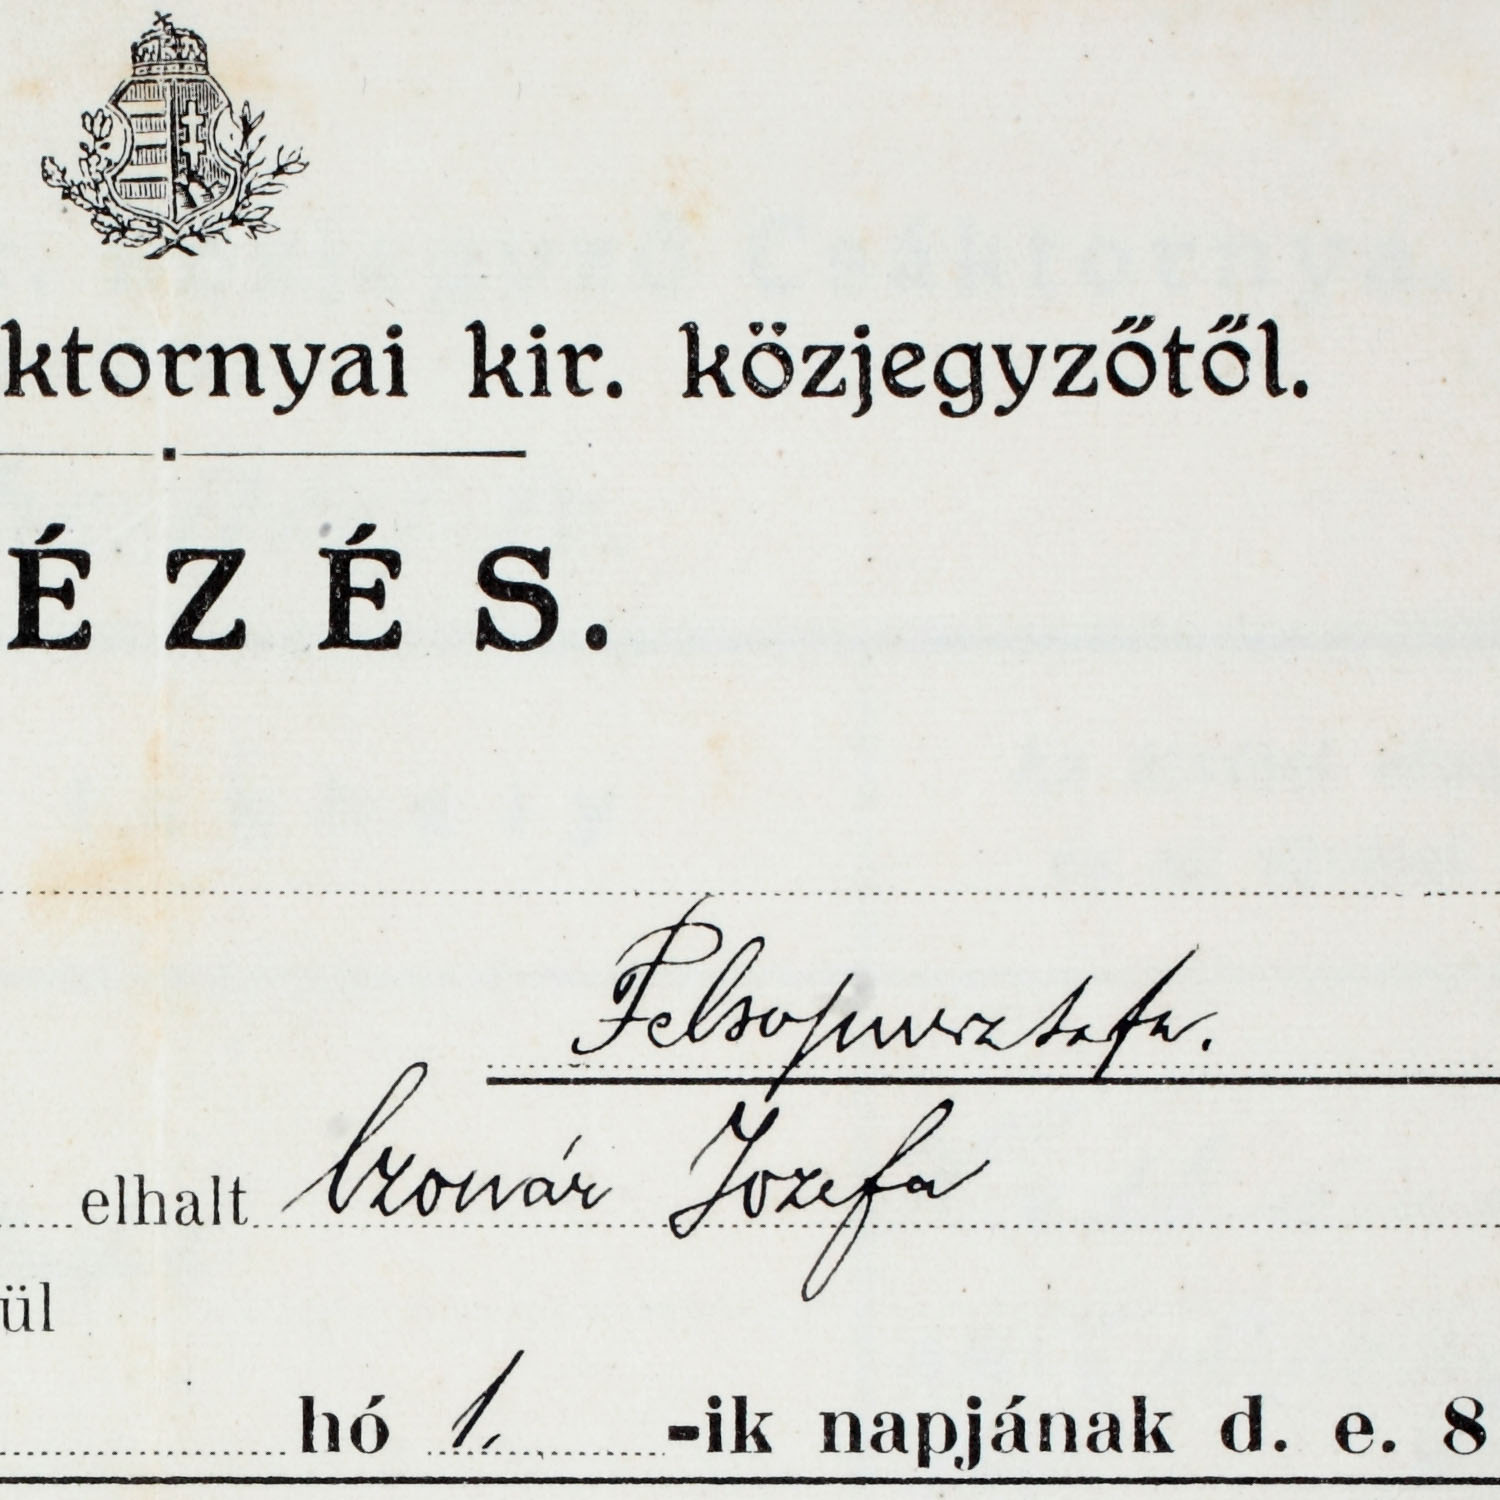 ktornyai kir. közjegyzőtől.
ÉZÉS.
Felsopusztafa.
elhalt Czonár Jozefa
ül
hó 1. -ik napjának d. e. 8